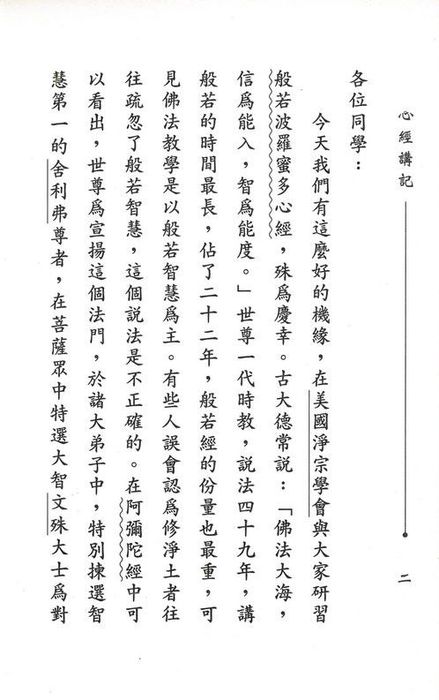 心經講記
二
各位同學：
今天我們有這麼好的機緣，在美國淨宗學會與大家研習
般若波羅蜜多心經，殊為慶幸。古大德常說：「佛法大海，
信為能入，智為能度。」世尊一代時教，說法四十九年，講
般若的時間最長，佔了二十二年，般若經的份量也最重，可
見佛法教學是以般若智慧為主。有些人誤會認為修淨土者往
往疏忽了般若智慧，這個說法是不正確的。在阿彌陀經中可
以看出，世尊為宣揚這個法門，於諸大弟子中，特別揀選智
慧第一的舍利弗尊者，在菩薩眾中特選大智文殊大士為對